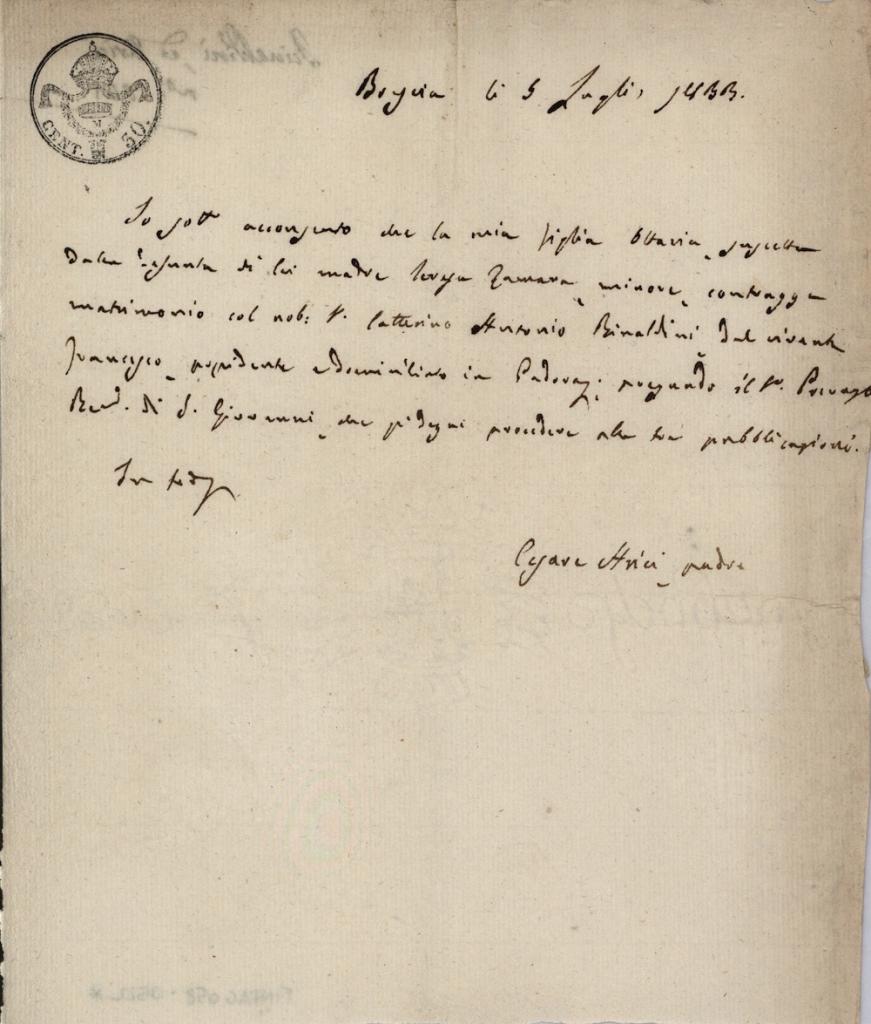 CENT. 30.
Brescia li 5 Luglio 1833.
Io sott.o acconsento che la mia figlia Ottavia, suscetta
dalla defunta di lei madre Teresa Zamara, minore, contragga
matrimonio col nob: Sr. Catterino Antonio Rinaldini, dal vivente
Francesco, possidente e domiciliato in Padova; pregando il Sr. Prevosto
Rend. di S. Giovanni, che si degni procedere alle tre pubblicazioni.
In fede
Cesare Arici, padre